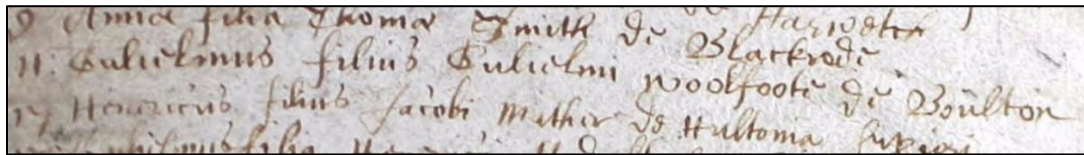 9 Anna filia Thomæ Smith de Blackrode
11: Gulielmus filius Gulielmi Woolfoote de Boulton
17 Henricus filius Jacobi Mather de Hultonia
filia